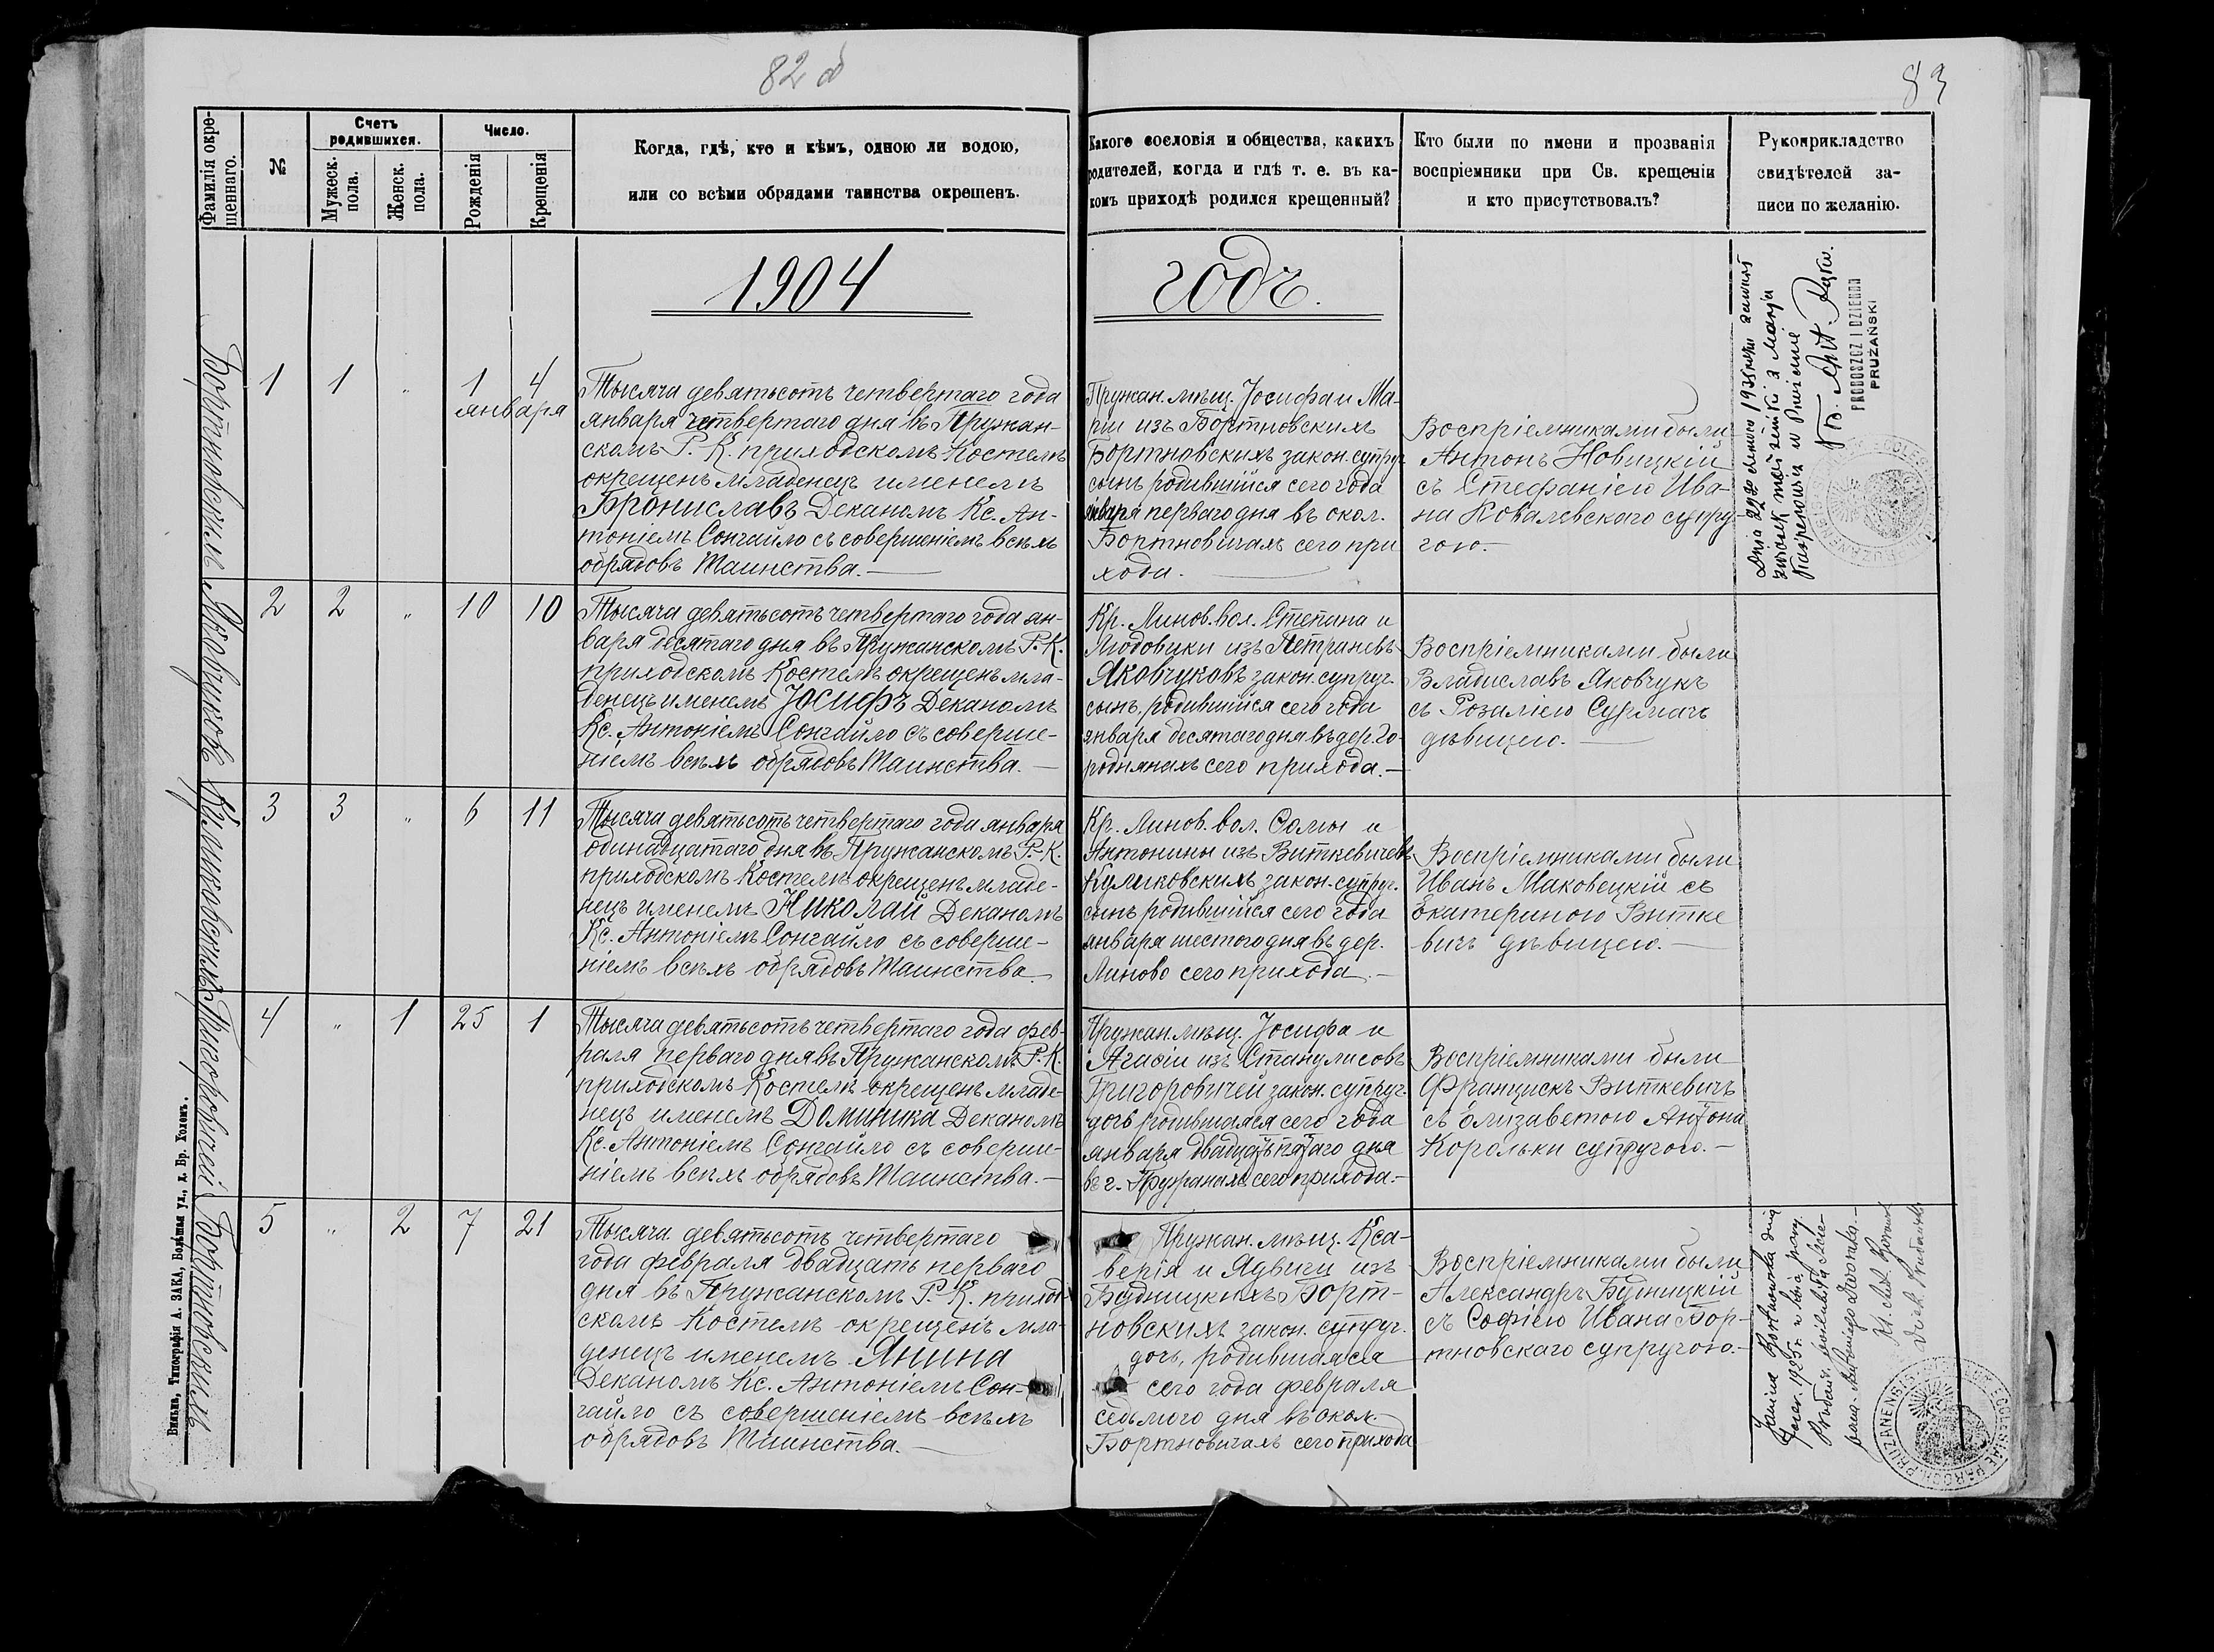 82 об
83
Фамилія окре-
щеннаго.
№
Счетъ
родившихся.
Мужеск.
пола.
Женск.
пола.
Число.
Рожденія
Крещенія
Когда, гдѣ, кто и кѣмъ, одною ли водою,
или со всѣми обрядами таинства окрещенъ.
Какого сословія и общества, какихъ
родителей, когда и гдѣ т. е. въ ка-
комъ приходѣ родился крещенный?
Кто были по имени и прозванія
воспріемники при Св. крещеніи
и кто присутствовалъ?
Рукоприкладство
свидѣтелей за-
писи по желанію.
1904
годъ.
Бортновскихъ
1
1
"
1
4
января
Тысяча девятьсотъ четвертаго года
января четвертаго дня въ Пружан-
скомъ Р. К. приходскомъ Костелѣ
окрещенъ младенецъ именемъ
Брониславъ Деканомъ Кс. Ан-
тоніемъ Сонгайло съ совершеніемъ всѣхъ
обрядовъ Таинства.—
Пружан. мѣщ. Іосифа и Ма-
ріи изъ Бортновскихъ
Бортновскихъ закон. супруг.
сынъ родившійся сего года
января перваго дня въ окол.
Бортновичахъ сего при
хода.
Воспріемниками были
Антонъ Новицкій
съ Стефаніею Ива-
на Ковалевскаго супру-
гою.
PROBOSZCZ I DZIEKAN
PRUŻAŃSKI
Яковчуковъ
2
2
"
10
10
Тысяча девятьсотъ четвертаго года ян-
варя десятаго дня въ Пружанскомъ Р. К.
приходскомъ Костелѣ окрещенъ мла-
денецъ именемъ Іосифъ Деканомъ
Кс. Антоніемъ Сонгайло съ соверше-
ніемъ всѣхъ обрядовъ Таинства.—
Кр. Линов. вол. Степана и
Людовики изъ Петраневъ
Яковчуковъ закон. супруг.
сынъ, родившійся сего года
января десятаго дня въ дер. Го-
роднянахъ сего прихода.—
Воспріемниками были
Владиславъ Яковчукъ
съ Розаліею Сурмачъ
дѣвицею.—
Куликовскихъ
3
3
"
6
11
Тысяча девятьсотъ четвертаго года января
одинадцатаго дня въ Пружанскомъ Р. К.
приходскомъ Костелѣ окрещенъ младе-
нецъ именемъ Николай Деканомъ
Кс. Антоніемъ Сонгайло съ соверше-
ніемъ всѣхъ обрядовъ Таинства
Кр. Линов. вол. Ѳомы и
Антонины изъ Виткевичевъ
Куликовскихъ закон. супруг.
сынъ родившійся сего года
января шестого дня въ дер.
Линово сего прихода.—
Воспріемниками были
Иванъ Маковецкій съ
Екатериною Витке
вичъ дѣвицею.—
Григоровичей
4
"
1
25
1
Тысяча девятьсотъ четвертаго года фев-
раля перваго дня въ Пружанскомъ Р. К.
приходскомъ Костелѣ окрещенъ младе-
нецъ именемъ Доминика Деканомъ
Кс. Антоніемъ Сонгайло съ соверше-
ніемъ всѣхъ обрядовъ Таинства.—
Пружан. мѣщ. Іосифа и
Агафіи изъ Станулисовъ
Григоровичей закон. супруг.
дочь родившаяся сего года
января двадцать пятаго дня
въ г. Пружанахъ сего прихода.—
Воспріемниками были
Францискъ Виткевичъ
съ Елизаветою Антона
Корольки супругою.—
Бортновскихъ
5
"
2
7
21
Тысяча девятьсотъ четвертаго
года февраля двадцать перваго
дня въ Пружанскомъ Р. К. приход-
скомъ Костелѣ окрещенъ мла-
денецъ именемъ Янина
Деканомъ Кс. Антоніемъ Сон-
гайло съ совершеніемъ всѣхъ
обрядовъ Таинства.—
Пружан. мѣщ. Кса-
верія и Ядвиги изъ
Будницкихъ Борт-
новскихъ закон. супруг.
дочь, родившаяся
сего года февраля
седьмого дня въ окол.
Бортновичахъ сего прихода
Воспріемниками были
Александръ Будницкій
съ Софіею Ивана Бор-
тновскаго супругою.—
Janina Bortnowska dnia
Вильна, Типографія А. ЗАКА, Большая ул., д. Бр. Голомъ.